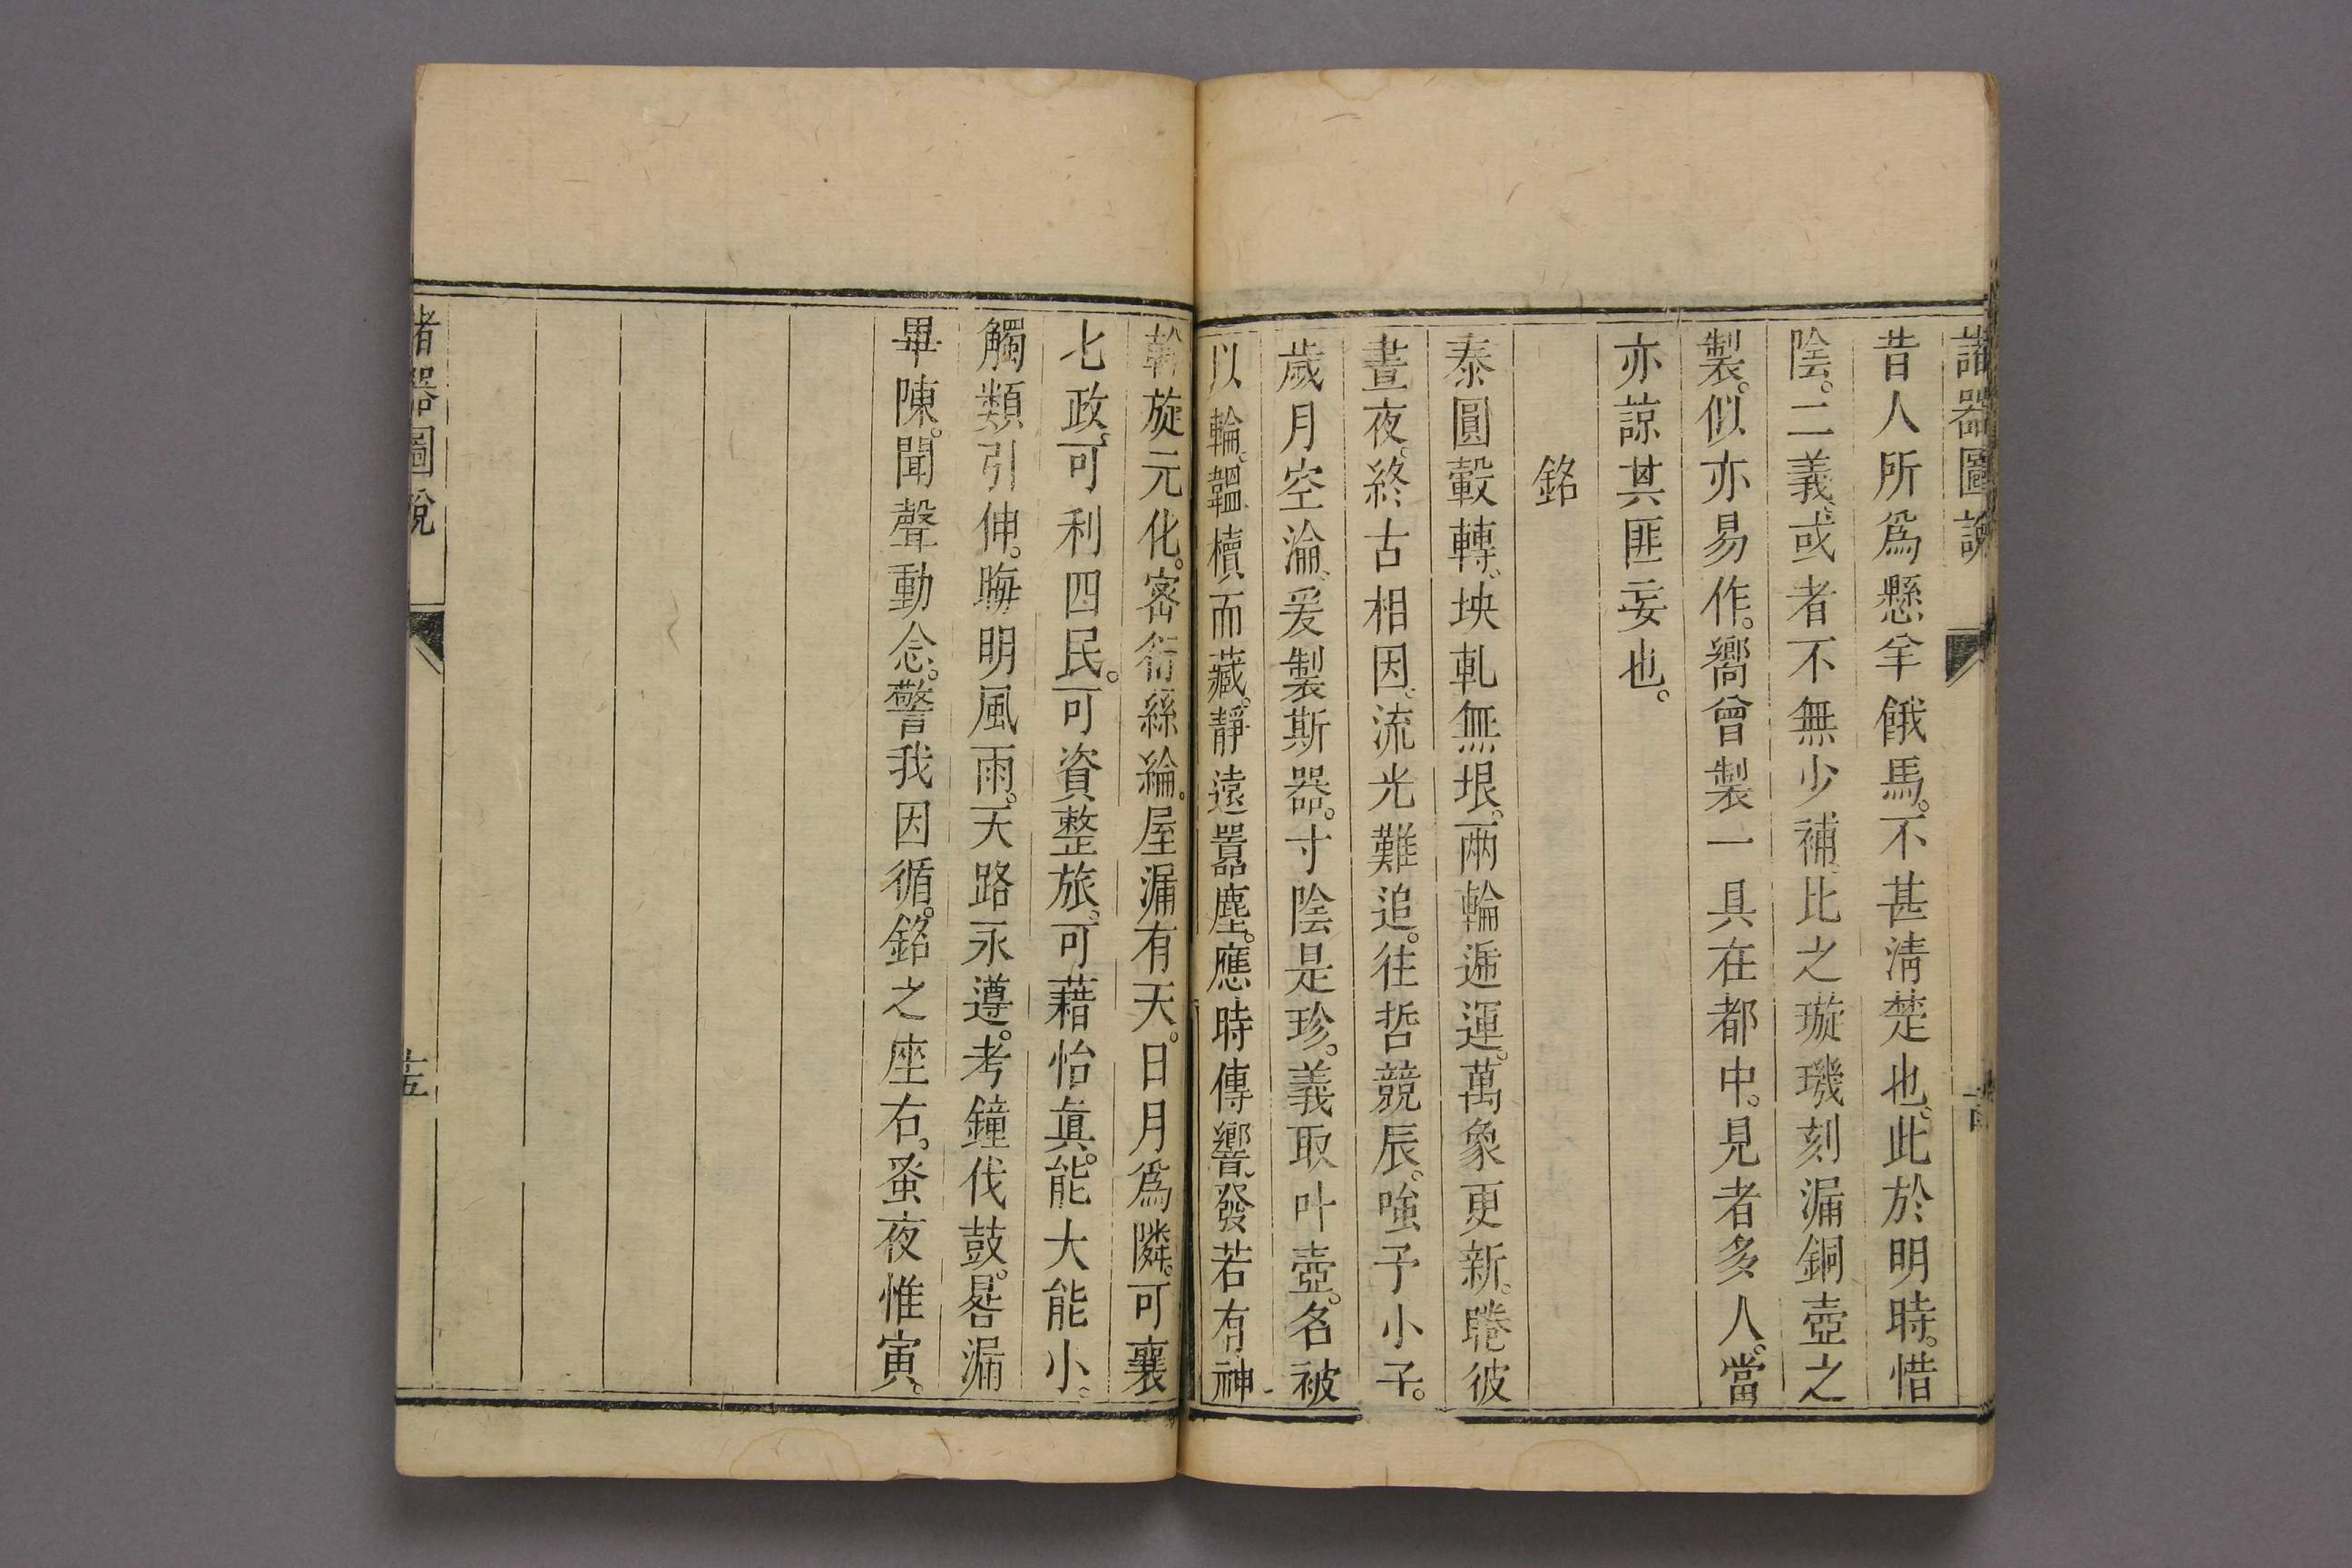 諸器圖說
昔人所爲懸羊餓馬。不甚淸楚也。此於明時。惜
陰。二義、或者不無少補、比之璇璣刻漏銅壺之
製。似亦易作。嚮曾製一具在都中。見者多人。當
亦諒其匪妄也。
銘
泰圓轂轉、坱軋無垠。兩輪遞運。萬象更新。睠彼
晝夜。終古相因。流光難追。往哲競辰。嗤予小子。
歲月空淪、爰製斯器。寸陰是珍。義取叶壺。名被
以輪。韞櫝而藏。靜遠囂塵。應時傳響。發若有神
斡旋元化。密衍絲綸。屋漏有天。日月爲隣。可襄
七政。可利四民。可資整旅。可藉怡眞。能大能小。
觸類引伸。晦明風雨。天路永遵。考鐘伐鼓。晷漏
畢陳。聞聲動念。警我因循。銘之座右。蚤夜惟寅。
諸器圖說
十五